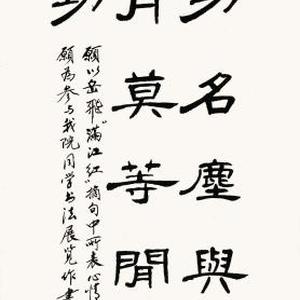 功名塵與
月莫等閒
願以岳飛“滿江紅”摘句中所表心情
願為参与我院同学书法展览作